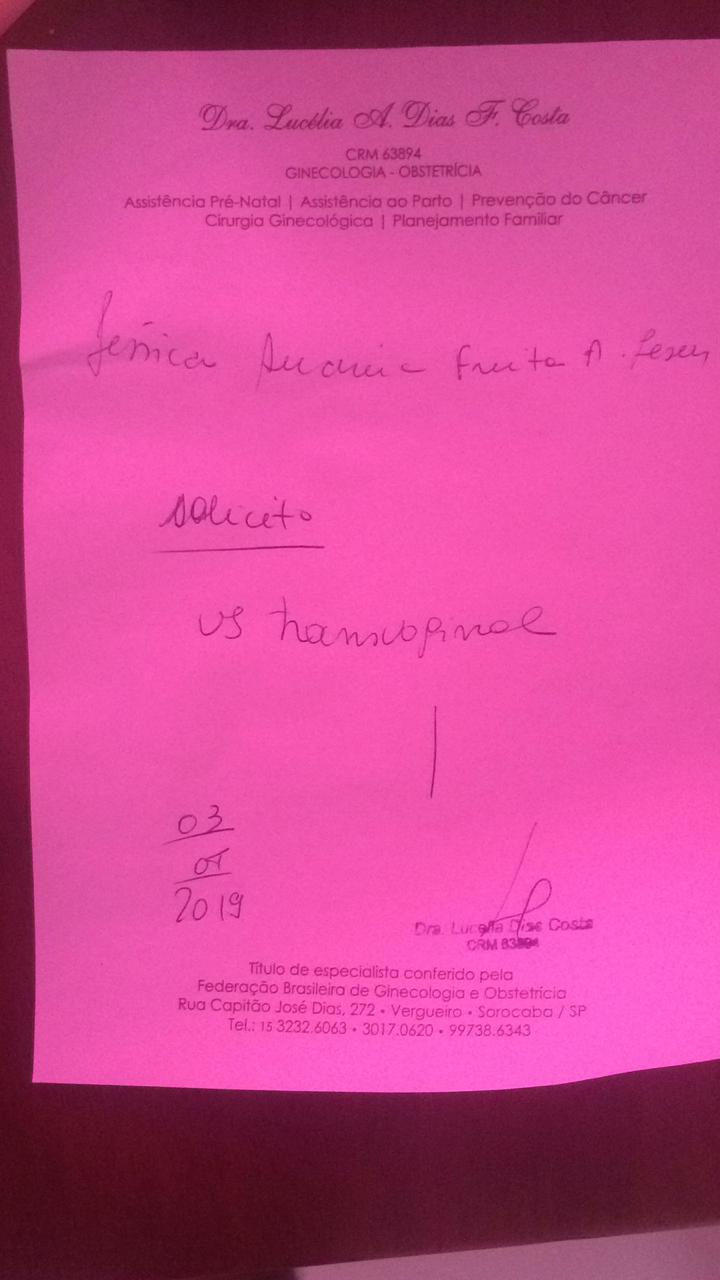 Dra. Lucélia A. Dias F. Costa
CRM 63894
GINECOLOGIA - OBSTETRÍCIA
Assistência Pré-Natal | Assistência ao Parto | Prevenção do Câncer
Cirurgia Ginecológica | Planejamento Familiar
Jéssica
solicito
US transvaginal
03
2019
Dra. Lucelia Dias Costa
CRM 63894
Título de especialista conferido pela
Federação Brasileira de Ginecologia e Obstetrícia
Rua Capitão José Dias, 272 • Vergueiro • Sorocaba / SP
Tel.: 15 3232.6063 • 3017.0620 • 99738.6343